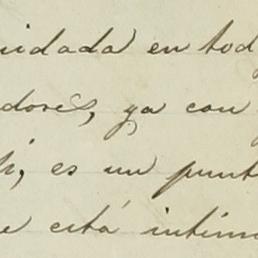 uidada en tod
dores, ya con
, es un punt
e está intim